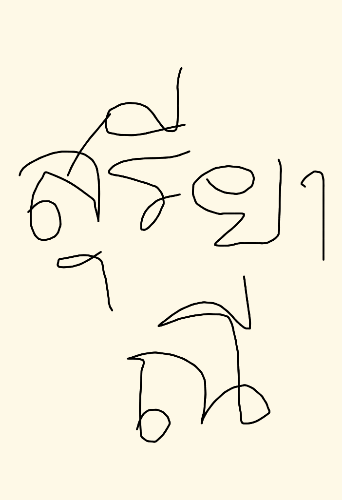 สุรียา
ณี